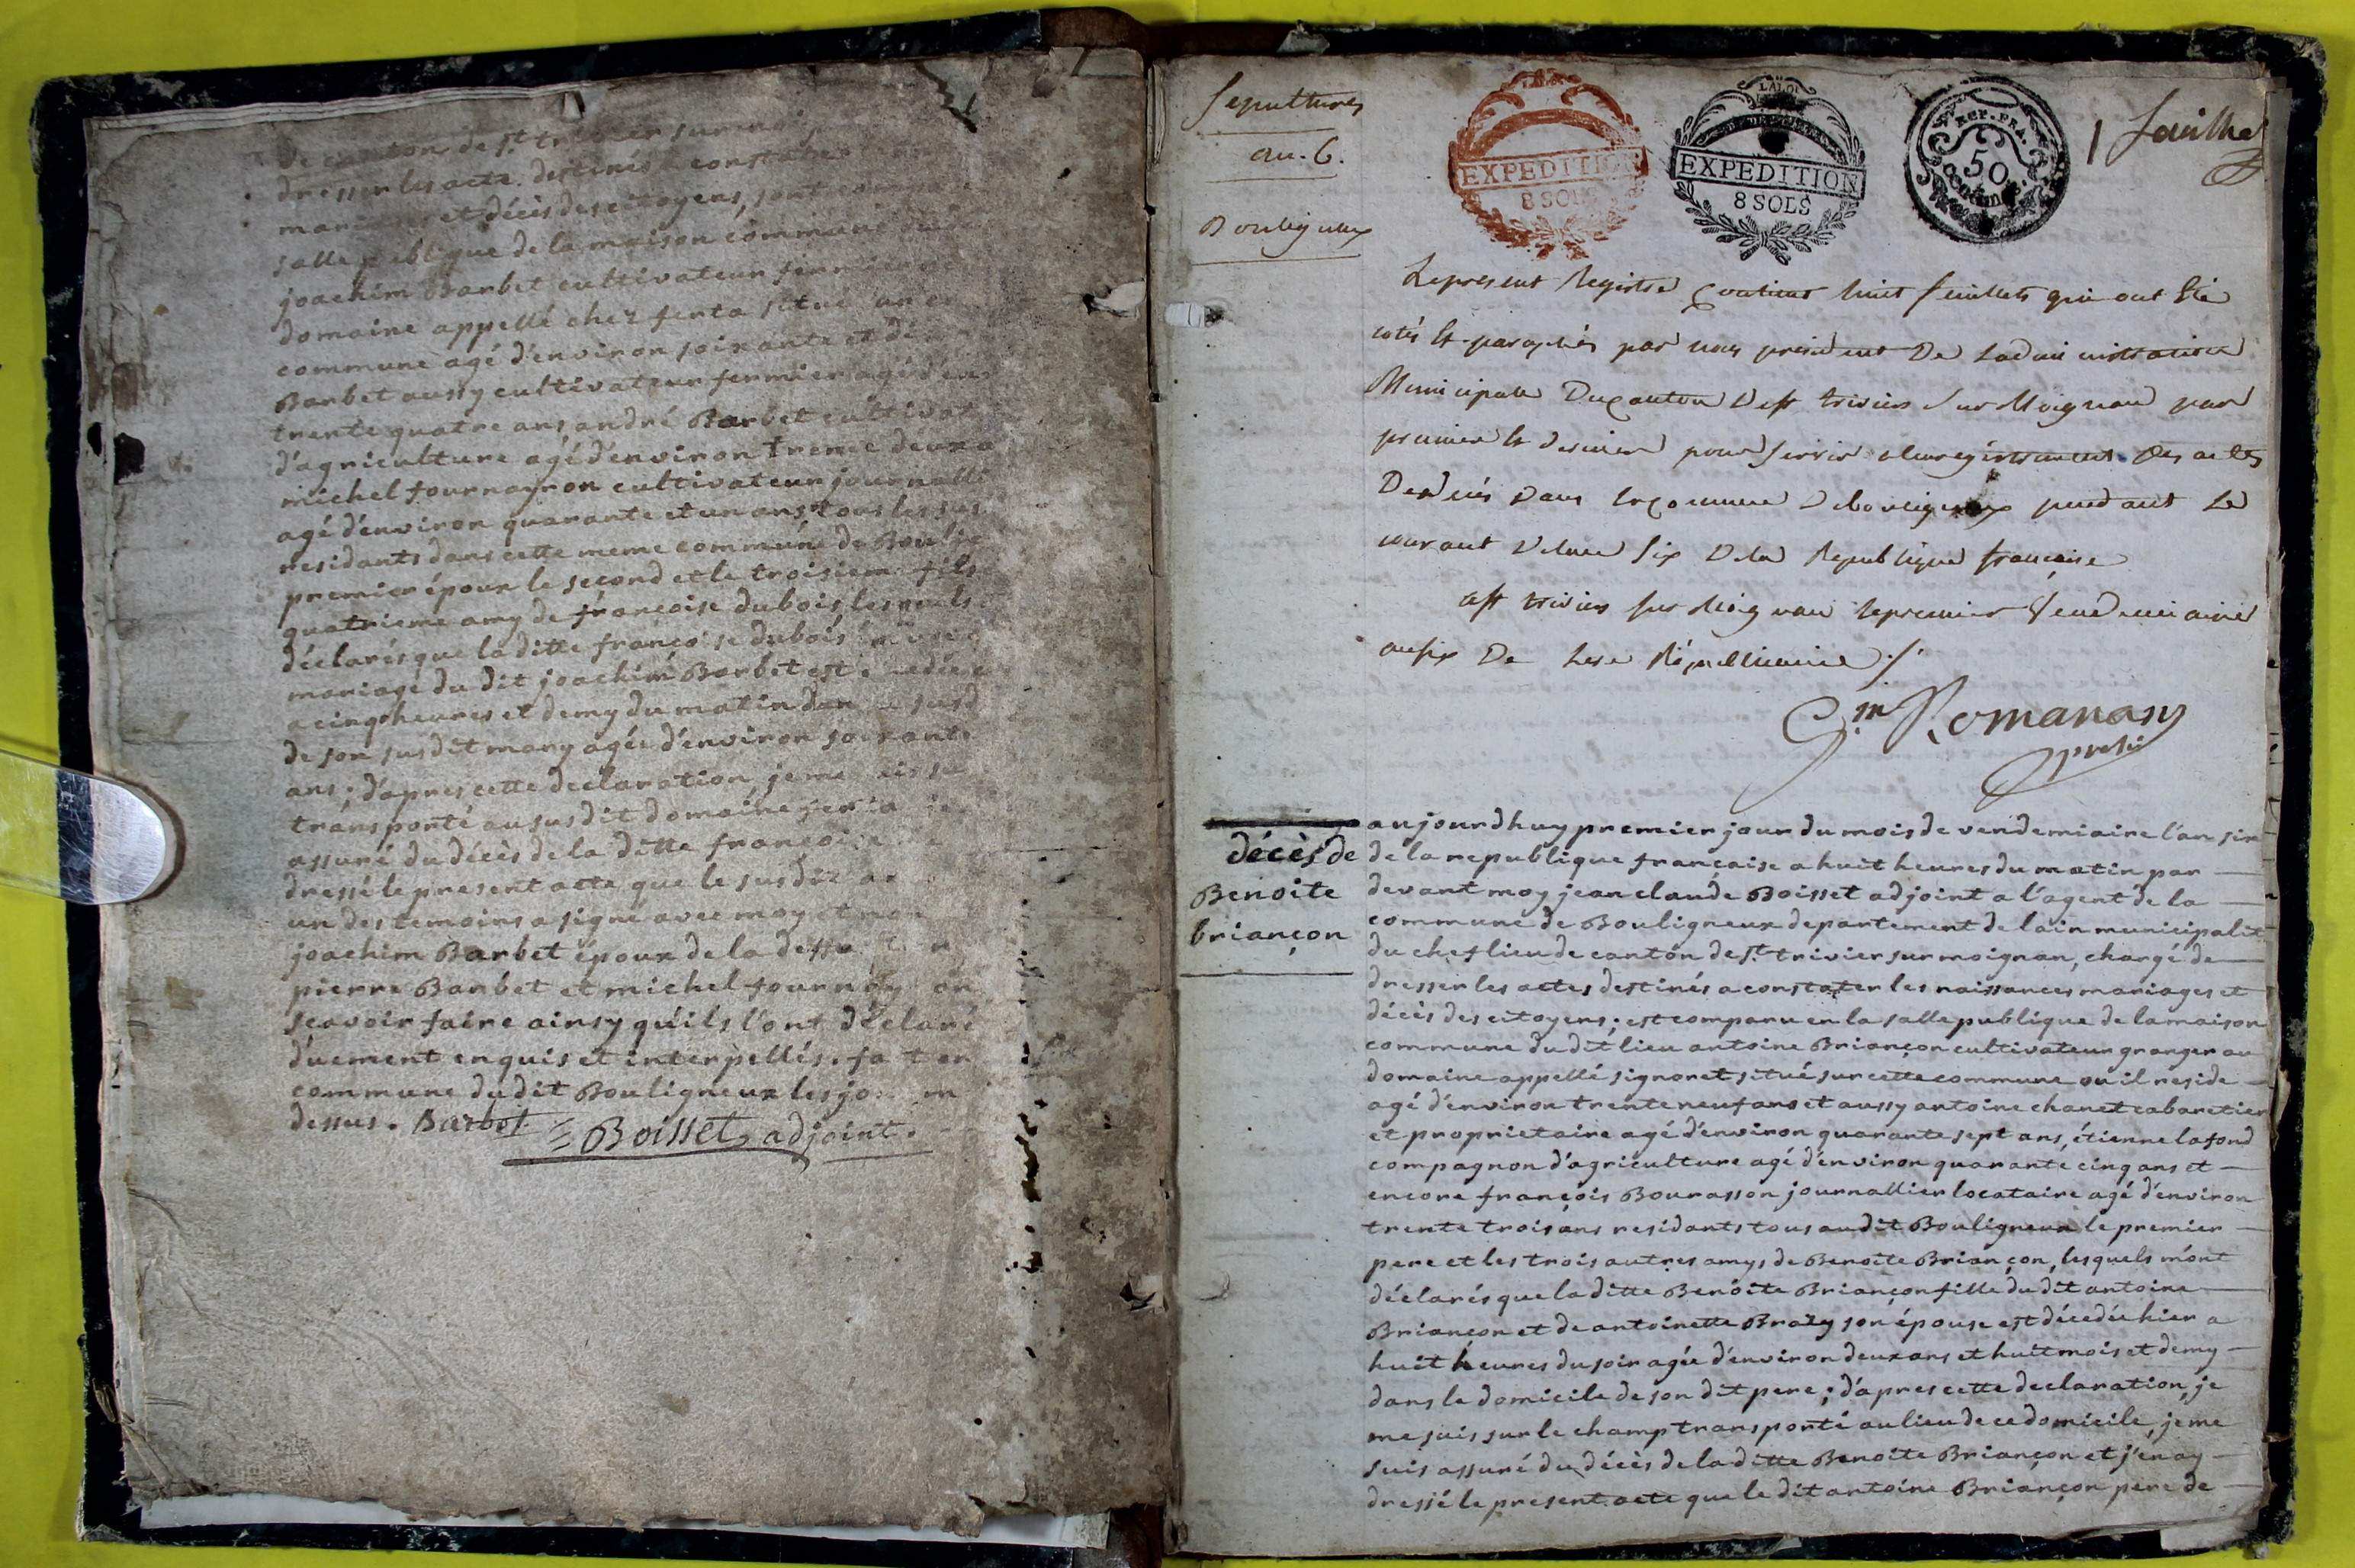 de canton de st trivier sur
dresser les acte destinés a constater
mariages et décès des citoyens, sont
salle publique de la maison commune
joachim Barbet cultivateur fermier
domaine appellé chez ferta situé
commune agé d'environ soixante et
Barbet aussy cultivateur fermier agé
trente quatre ans, andré Barbet
d'agriculture agé d'environ trente deux
michel fournayron cultivateur
agé d'environ quarante et un ans tous les
residants dans cette meme commune de
premier époux le second et le troisieme fils
quatrieme amy de françoise dubois, lesquels
déclarés que la ditte françoise dubois
mariage du dit joachim Barbet est
a cinq heures et demy du matin
de son susdit mary agée d'environ soixante
ans; d'apres cette declaration, je me
transporté au susdit domaine ferta
assuré du décès de la ditte françoise
dressé le present acte que le susdit
un des temoins a signé avec moy et non
joachim Barbet époux de la
pierre Barbet et michel
scavoir faire ainsy qu'ils l'ont déclaré
d'uement enquis et interpellés. fait en
commune du dit Bouligneux les
dessus. Barbet Boisset, adjoint.
Sepultures
an. 6.
Bouligneux
EXPEDITION
8 SOLS
LA LOI
EXPEDITION
8 SOLS
REP. FRA.
50
centimes
1
Le present Registre Contient huit feuillets qui ont Eté
cotés Et paraphés par nous president De
Municipale Du Canton De st trivier Sur Moignan par
premier Et dernier pour servir a l'enregistrement Des actes
De décès Dans la Commune De bouligneux pendant Le
courant De l'an Six De la Republique française
a st trivier sur Moignan le premier Vendemiaire
an six De
Romanans
presid
décès de
Benoite
briançon
aujourdhuy premier jour du mois de vendemiaire l'an six
de la republique française a huit heures du matin par
devant moy jean claude Boisset adjoint a l'agent de la
commune de Bouligneux departement de lain municipalité
du chef lieu de canton de st trivier sur moignan, chargé de
dresser les actes destinés a constater les naissances mariages et
décès des citoyens; est comparu en la salle publique de la maison
commune du dit lieu antoine Briançon cultivateur granger au
domaine appellé signoret situé sur cette commune ou il reside
agé d'environ trente neuf ans et aussy antoine chanet cabaretier
et proprietaire agé d'environ quarante sept ans, étienne lafond
compagnon d'agriculture agé d'environ quarante cinq ans et
encore françois Bourasson journallier locataire agé d'environ
trente trois ans residants tous audit Bouligneux le premier
pere et les trois autres amys de Benoite Briançon, lesquels m'ont
déclarés que la ditte Benoite Briançon fille du dit antoine
Briançon et de antoinette Brazy son épouse est décedée hier a
huit heures du soir agée d'environ deux ans et huit mois et demy
dans le domicile de son dit pere; d'apres cette declaration, je
me suis sur le champ transporté au lieu de ce domicile, je me
suis assuré du décès de la ditte Benoite Briançon et j'en ay
dressé le present acte que le dit antoine Briançon pere de